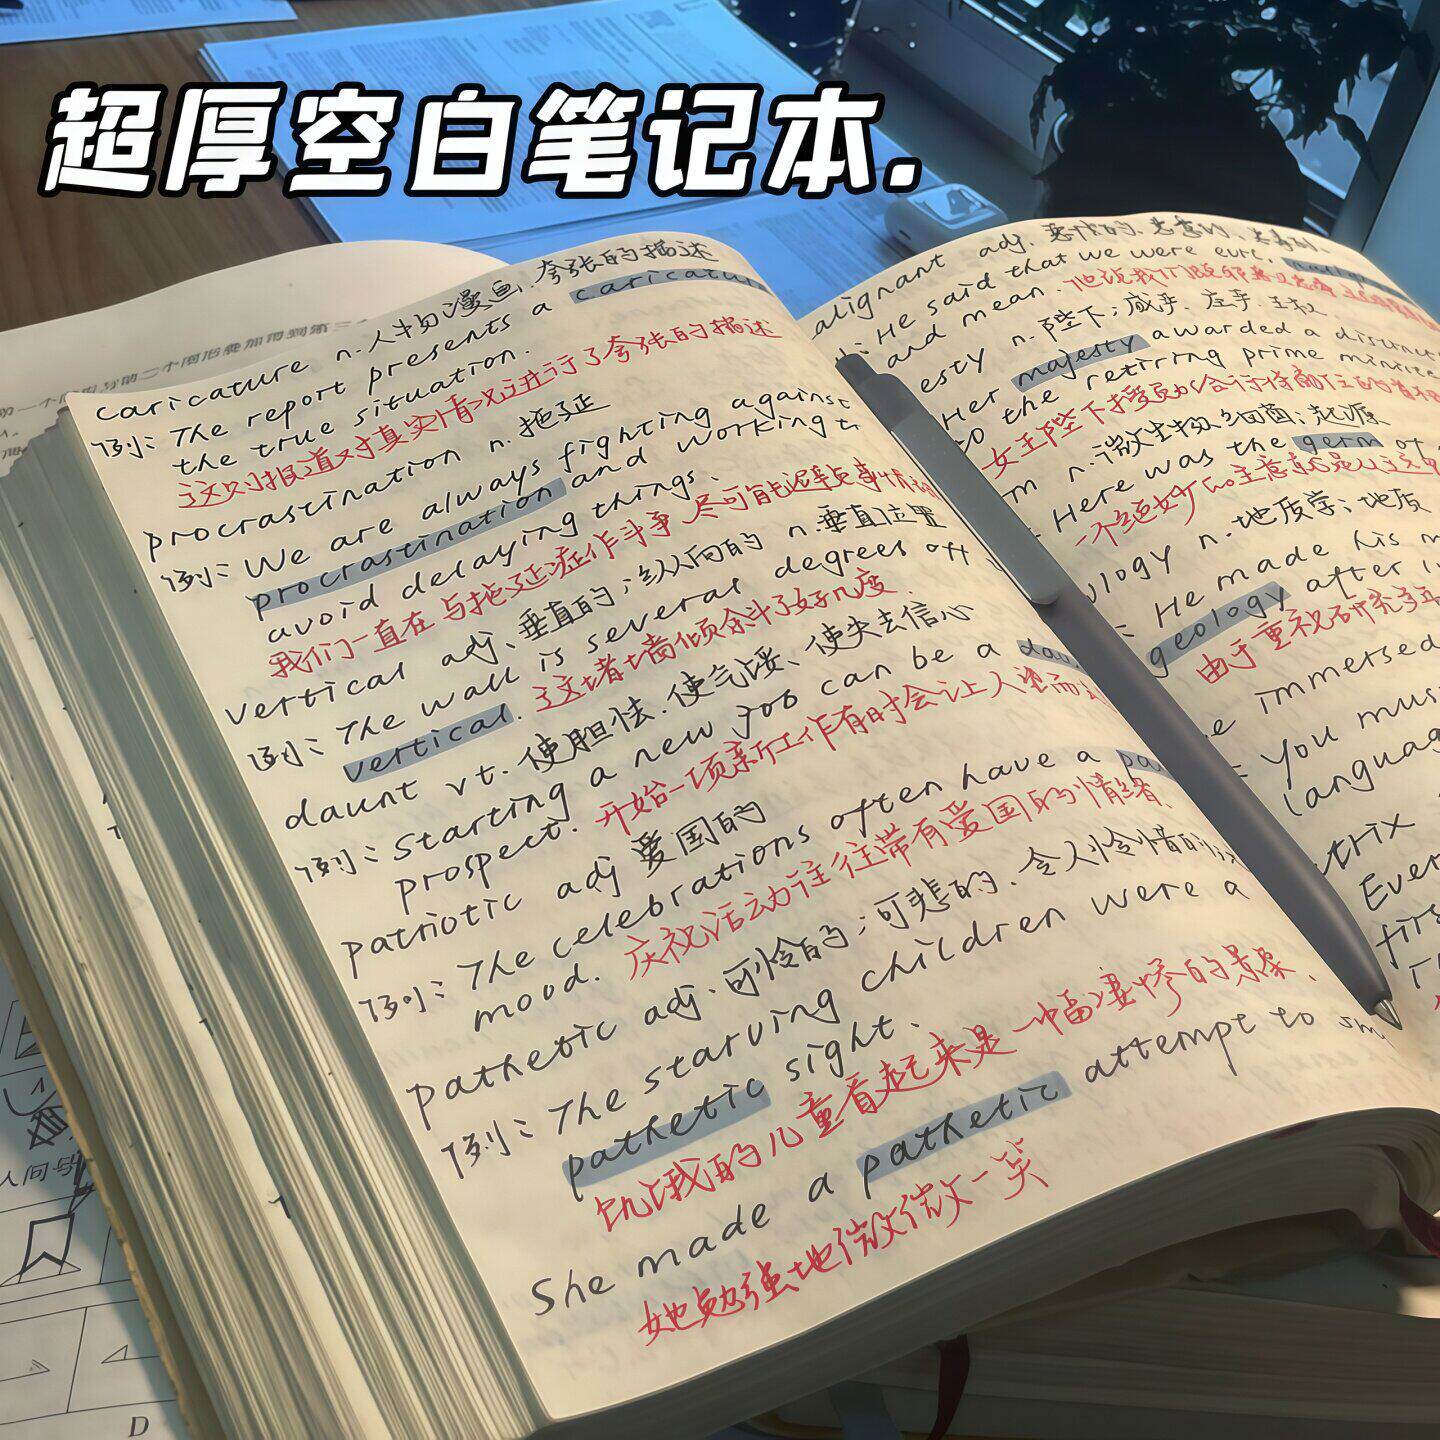 超厚空白笔记本.
caricature n.人物漫画,夸张的描述
例: The report presents a caricature
the true situation.
这则报道对真实情况进行了夸张的描述
procrastination n.拖延
例: We are always fighting against
procrastination and working t
avoid delaying things.
我们一直在与拖延症作斗争 尽可能避免事情
vertical adj、垂直的;纵向的 n.垂直位置
例: The wall is several degrees off
vertical. 这堵墙倾斜了好几度
daunt vt. 使胆怯.使气馁、使失去信心
例: Starting a new job can be a dau
prospect. 开始一项新工作有时会让人望而
patriotic adj 爱国的
例: The celebrations often have a pa
mood. 庆祝活动往往带有爱国的情绪.
pathetic adj.可怜的;可悲的.令人怜惜的
例: The starving children were a
pathetic sight.
饥饿的儿童看起来是一幅凄惨的景象.
She made a pathetic attempt to sm
她勉强地微微一笑
alignant adj.
: He said that we were evil,
and mean.
esty n. 陛下;威严.庄严.王权
Her majesty awarded a distinct
to the retiring prime minister
女王陛下授予
m n.微生物.细菌;起源
Here was the germ of
一个绝妙的主意就是从这
ology n.地质学;地质
: He made his m
geology after
由于重视研究
e immersed
: You mus
languag
trix
Ever
firs
D